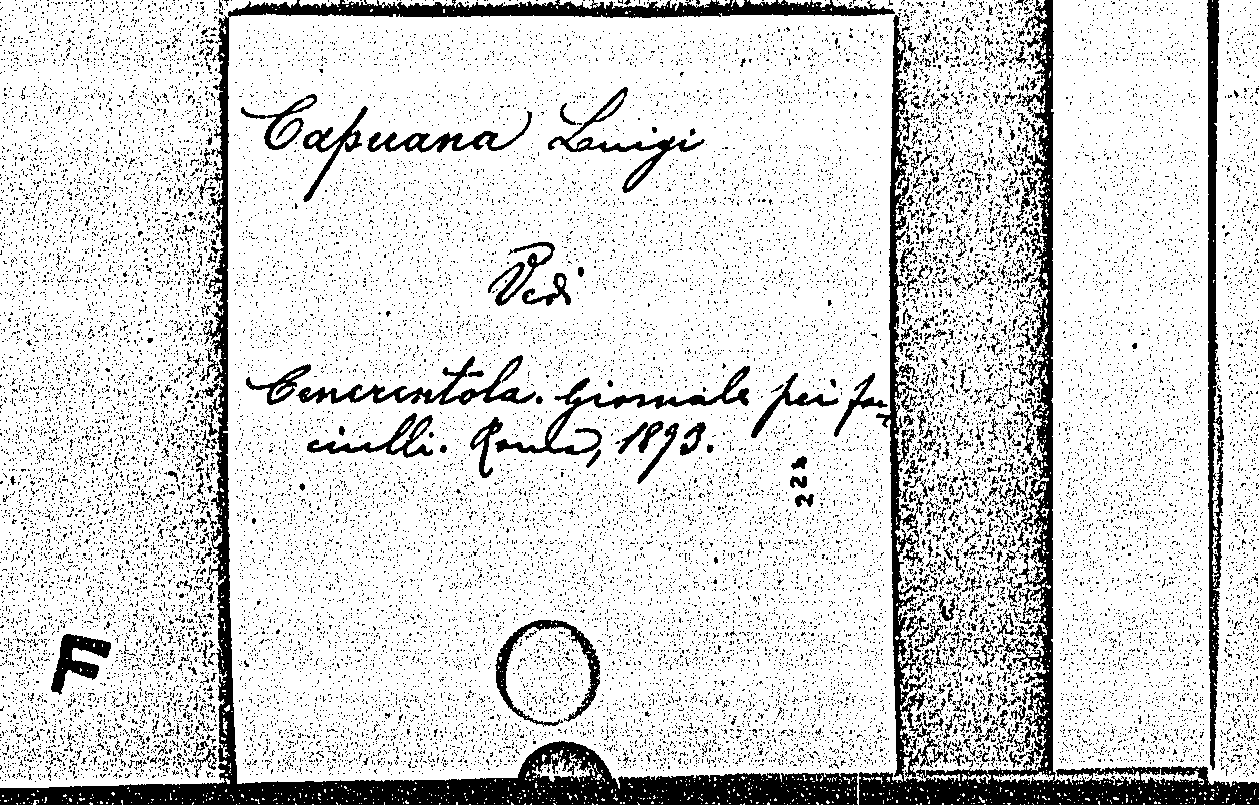 Capuana Luigi
Vedi
Cenerentola. Giornale pei fan-
ciulli. Roma, 1893.
221
F